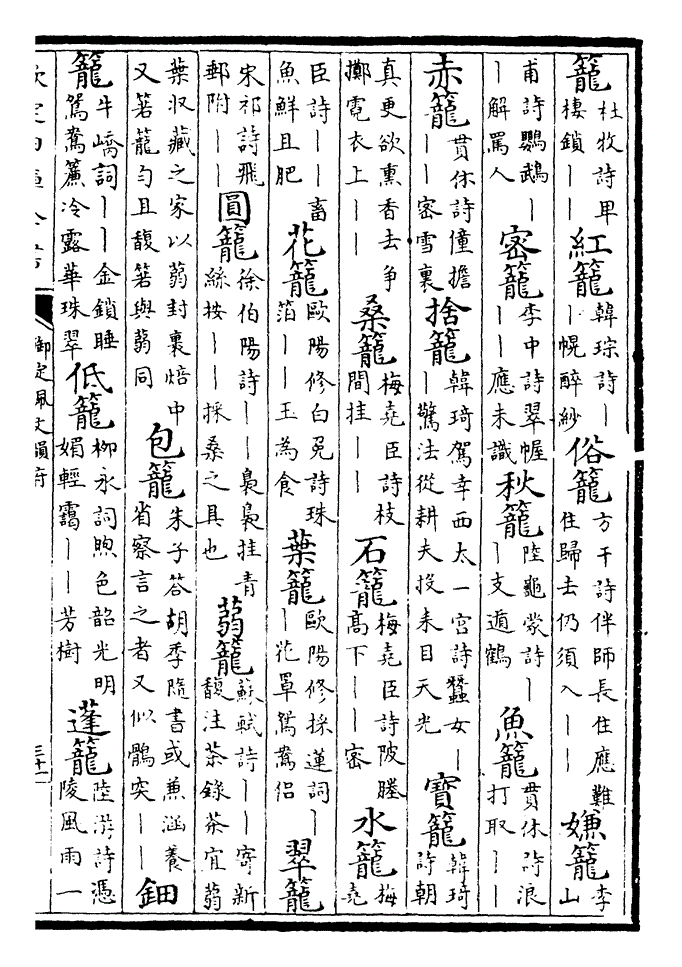 籠杜牧詩卑棲鎖｜｜紅籠韓琮詩｜｜幌醉紗俗籠方干詩伴師長住應難住歸去仍須入｜｜嫌籠李山
甫詩鸚鵡｜｜解罵人密籠李中詩翠幄｜｜應未識秋籠陸龜蒙詩｜｜支遁鶴魚籠貫休詩浪打取｜｜
赤籠貫休詩僮擔｜｜密雪裏捨籠韓琦駕幸西太一宮詩蠶女｜｜驚法從耕夫投耒目天光寶籠韓琦詩朝
真更欲熏香去爭擲霓衣上｜｜桑籠梅堯臣詩枝間挂｜｜石籠梅堯臣詩陂塍高下｜｜密水籠梅堯
臣詩｜｜畜魚鮮且肥花籠歐陽修白兔詩珠箔｜｜玉為食葉籠歐陽修採蓮詞｜｜花罩鴛鴦侶翠籠
宋祁詩飛郵附｜｜圓籠徐伯陽詩｜｜裊裊挂青絲按｜｜採桑之具也蒻籠蘇軾詩｜｜寄新馥注茶錄茶宜蒻
葉收藏之家以蒻封裹焙中又箬籠勻且馥箬與蒻同包籠朱子答胡季隨書或兼涵養省察言之者又似鶻突｜｜鈿
籠牛嶠詞｜｜金鎖睡鴛鴦簾冷露華珠翠低籠柳永詞煦色韶光明媚輕靄｜｜芳樹蓬籠陸游詩憑陵風雨一
御定佩文韻府
三十一